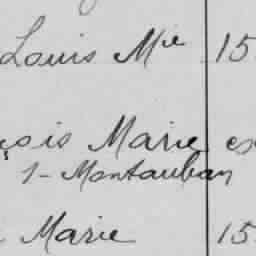 Louis Mie 15
çois Marie ex
1- Montauban
Marie 15